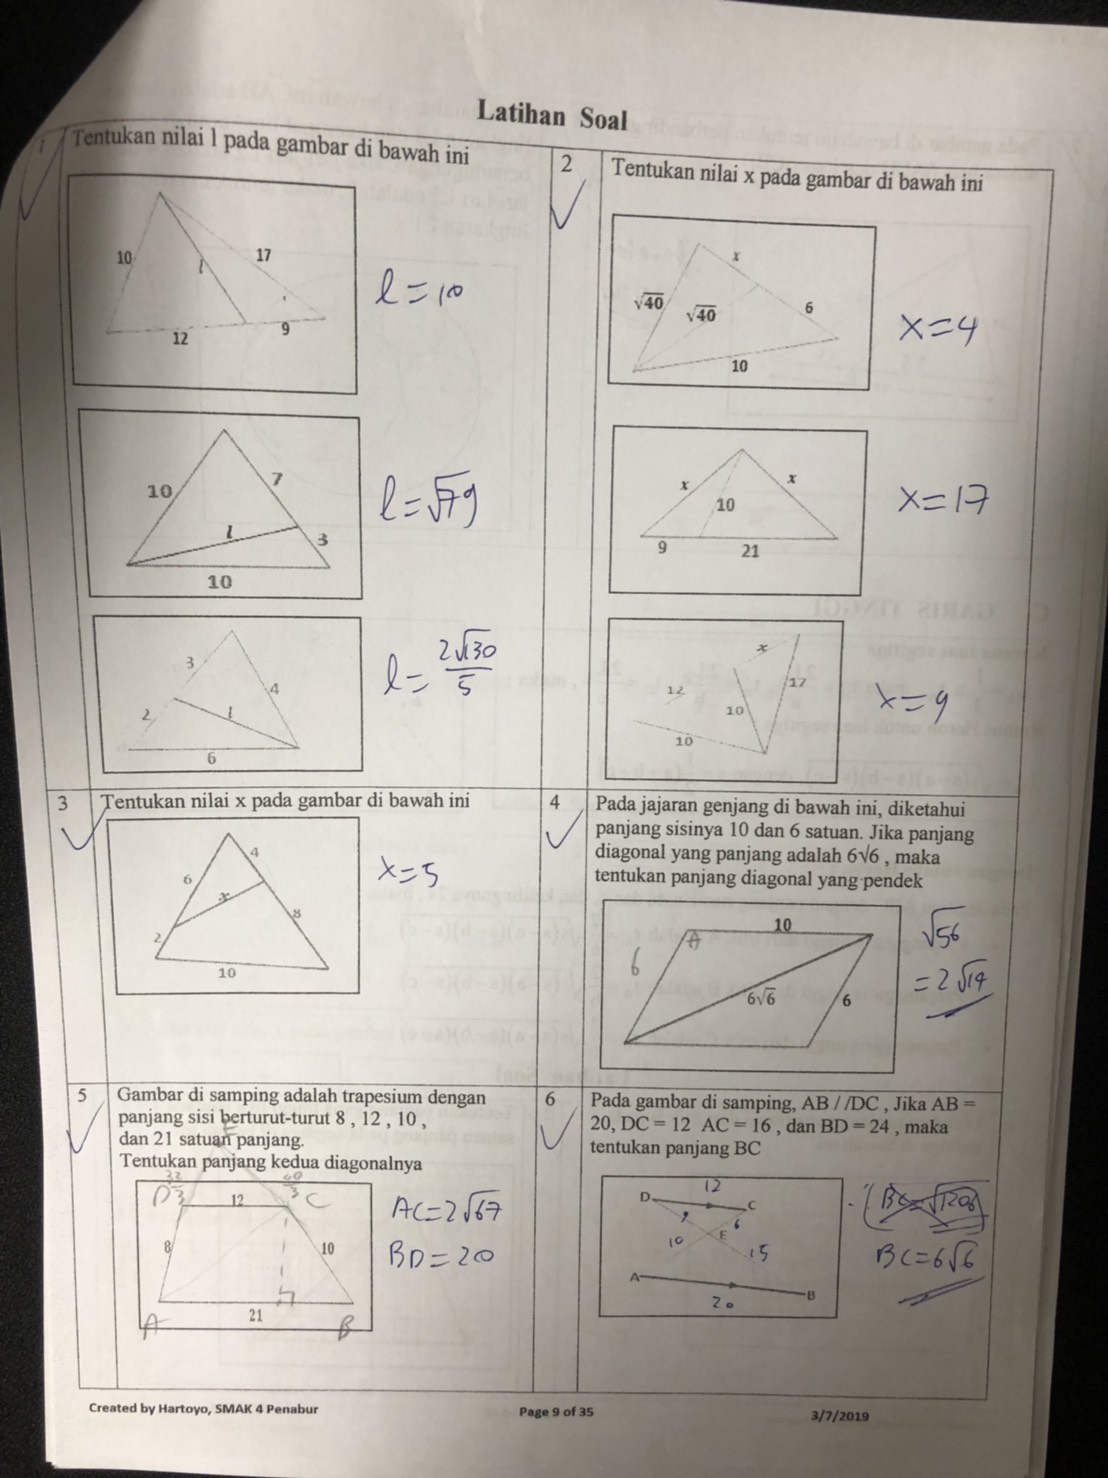 Latihan Soal
1 Tentukan nilai l pada gambar di bawah ini
10
l
17
12
9
l = 10
10
7
l
3
10
l = √79
3
4
2
l
6
l = 2√130/5
2 Tentukan nilai x pada gambar di bawah ini
x
√40
√40
6
10
x = 4
x
x
10
9
21
x = 17
x
12
17
10
10
x = 9
3 Tentukan nilai x pada gambar di bawah ini
4
6
x
8
2
10
x = 5
4 Pada jajaran genjang di bawah ini, diketahui
panjang sisinya 10 dan 6 satuan. Jika panjang
diagonal yang panjang adalah 6√6 , maka
tentukan panjang diagonal yang pendek
10
6
6√6
6
√56
= 2√14
5 Gambar di samping adalah trapesium dengan
panjang sisi berturut-turut 8 , 12 , 10 ,
dan 21 satuan panjang.
Tentukan panjang kedua diagonalnya
D
12
C
8
10
21
A
B
AC = 2√67
BD = 20
6 Pada gambar di samping, AB / /DC , Jika AB =
20, DC = 12 AC = 16 , dan BD = 24 , maka
tentukan panjang BC
12
D
C
9
6
10
E
15
A
B
20
BC = √1206
BC = 6√6
Created by Hartoyo, SMAK 4 Penabur
Page 9 of 35
3/7/2019